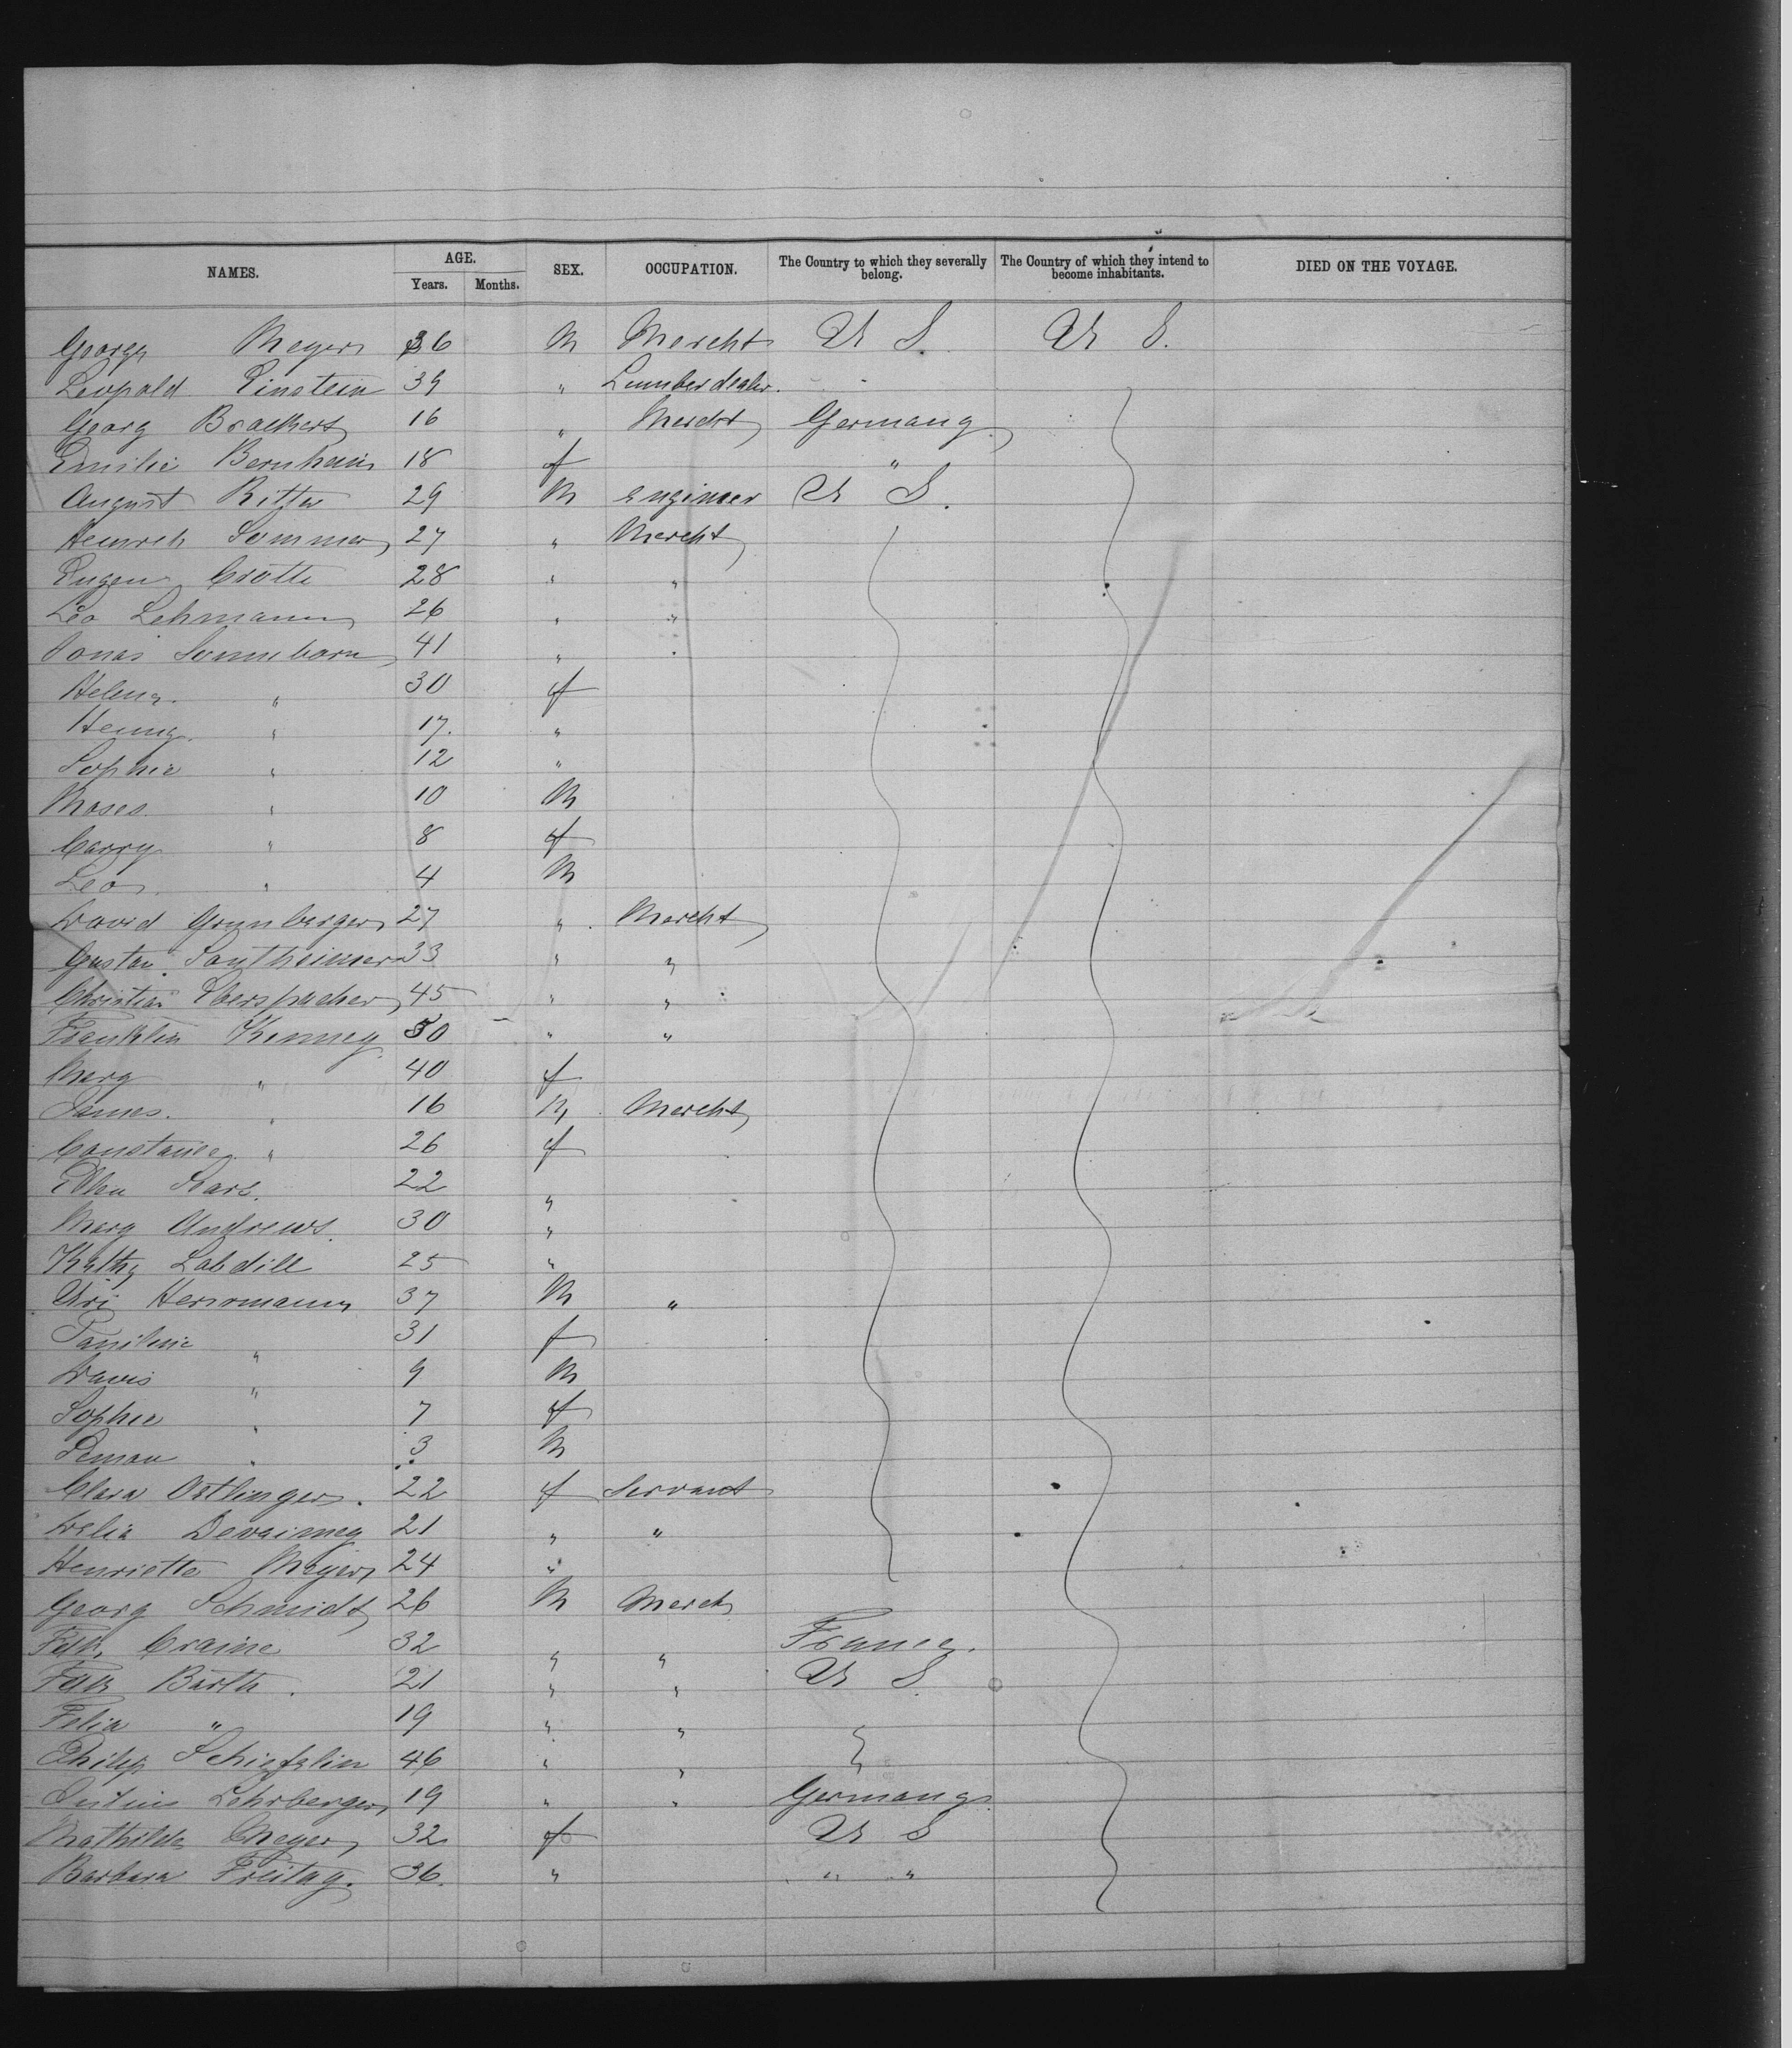 NAMES. AGE. Years. Months. SEX. OCCUPATION. The Country to which they severally belong. The Country of which they intend to become inhabitants. DIED ON THE VOYAGE.
George Meyer 36 M Mercht U S. U S.
Leopold Einstein 39 " Lumber dealer.
Georg Brackert 16 " Mercht Germany
Emilie Bernheim 18 f "
August Ritter 29 M engineer U S.
Heinrich Sommer 27 " Mercht
Eugen Crotte 28 " "
Leo Lehmann 26 " "
Jonas Sonneborn 41 "
Helena " 30 f
Henny " 17. "
Sophie " 12 "
Moses " 10 M
Carry " 8 f
Leo " 4 M
David Grunberger 27 " Mercht
Gustav Sontheimer 33 " "
Christian Eberspacher 45 " "
Franklin Kenney 50 " "
Mary " 40 f
James. " 16 M Mercht
Constance " 26 f
Ellen Sears. 22 "
Mary Andrews. 30 "
Kathy Labdill 25 "
Uri Herrmann 37 M "
Pauline " 31 f
" 9 M
Sophie " 7 f
" 3 M
Clara Ostlinger. 22 f Servant
Delia 21 " "
Henriette Meyer 24 "
Georg Schmidt 26 M Merch
Craine 32 " " France.
Barth. 21 " " U S.
" 19 " "
Philip Schiefalin 46 " "
Julius Lehrberger 19 " " Germany
Mathilde Meyer 32 f U S
Barbara Freitag. 36. " " "